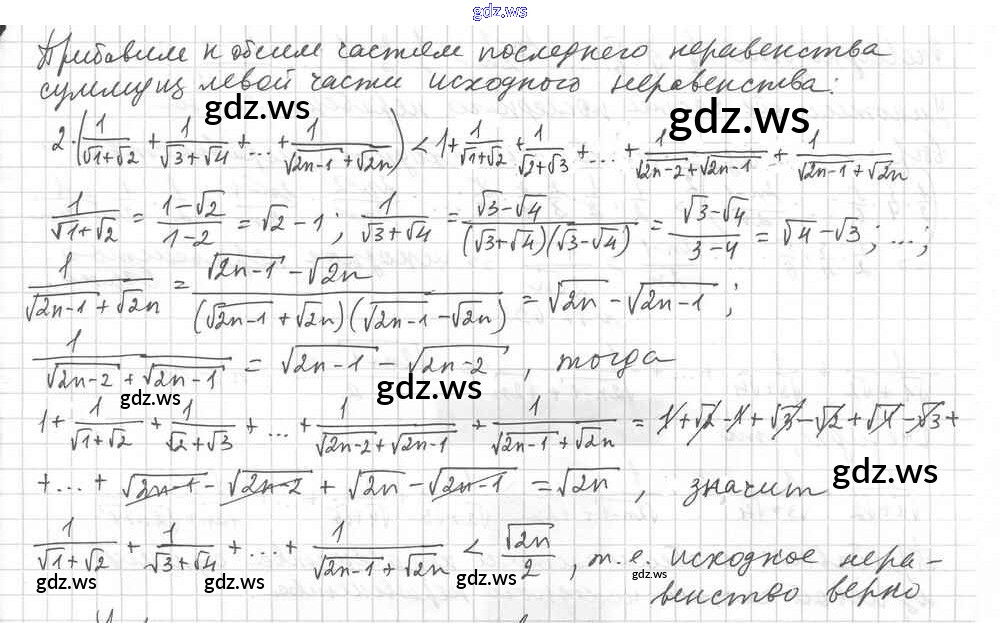 gdz.ws
Прибавим к обеим частям последнего неравенства
сумму из левой части исходного неравенства:
gdz.ws
gdz.ws
2·(1/(√1+√2) + 1/(√3+√4) + ... + 1/(√2n-1 + √2n)) < 1 + 1/(√1+√2) + 1/(√2+√3) + ... + 1/(√2n-2 + √2n-1) + 1/(√2n-1 + √2n)
1/(√1+√2) = (1-√2)/(1-2) = √2 - 1; 1/(√3+√4) = (√3-√4)/((√3+√4)(√3-√4)) = (√3-√4)/(3-4) = √4 - √3; ...;
1/(√2n-1 + √2n) = (√2n-1 - √2n)/((√2n-1 + √2n)(√2n-1 - √2n)) = √2n - √2n-1;
1/(√2n-2 + √2n-1) = √2n-1 - √2n-2, тогда
gdz.ws
gdz.ws
1 + 1/(√1+√2) + 1/(√2+√3) + ... + 1/(√2n-2 + √2n-1) + 1/(√2n-1 + √2n) = 1 + √2 - 1 + √3 - √2 + √4 - √3 +
+ ... + √2n-1 - √2n-2 + √2n - √2n-1 = √2n, значит
gdz.ws
1/(√1+√2) + 1/(√3+√4) + ... + 1/(√2n-1 + √2n) < √2n/2, т.е. исходное нера-
венство верно
gdz.ws
gdz.ws
gdz.ws
gdz.ws